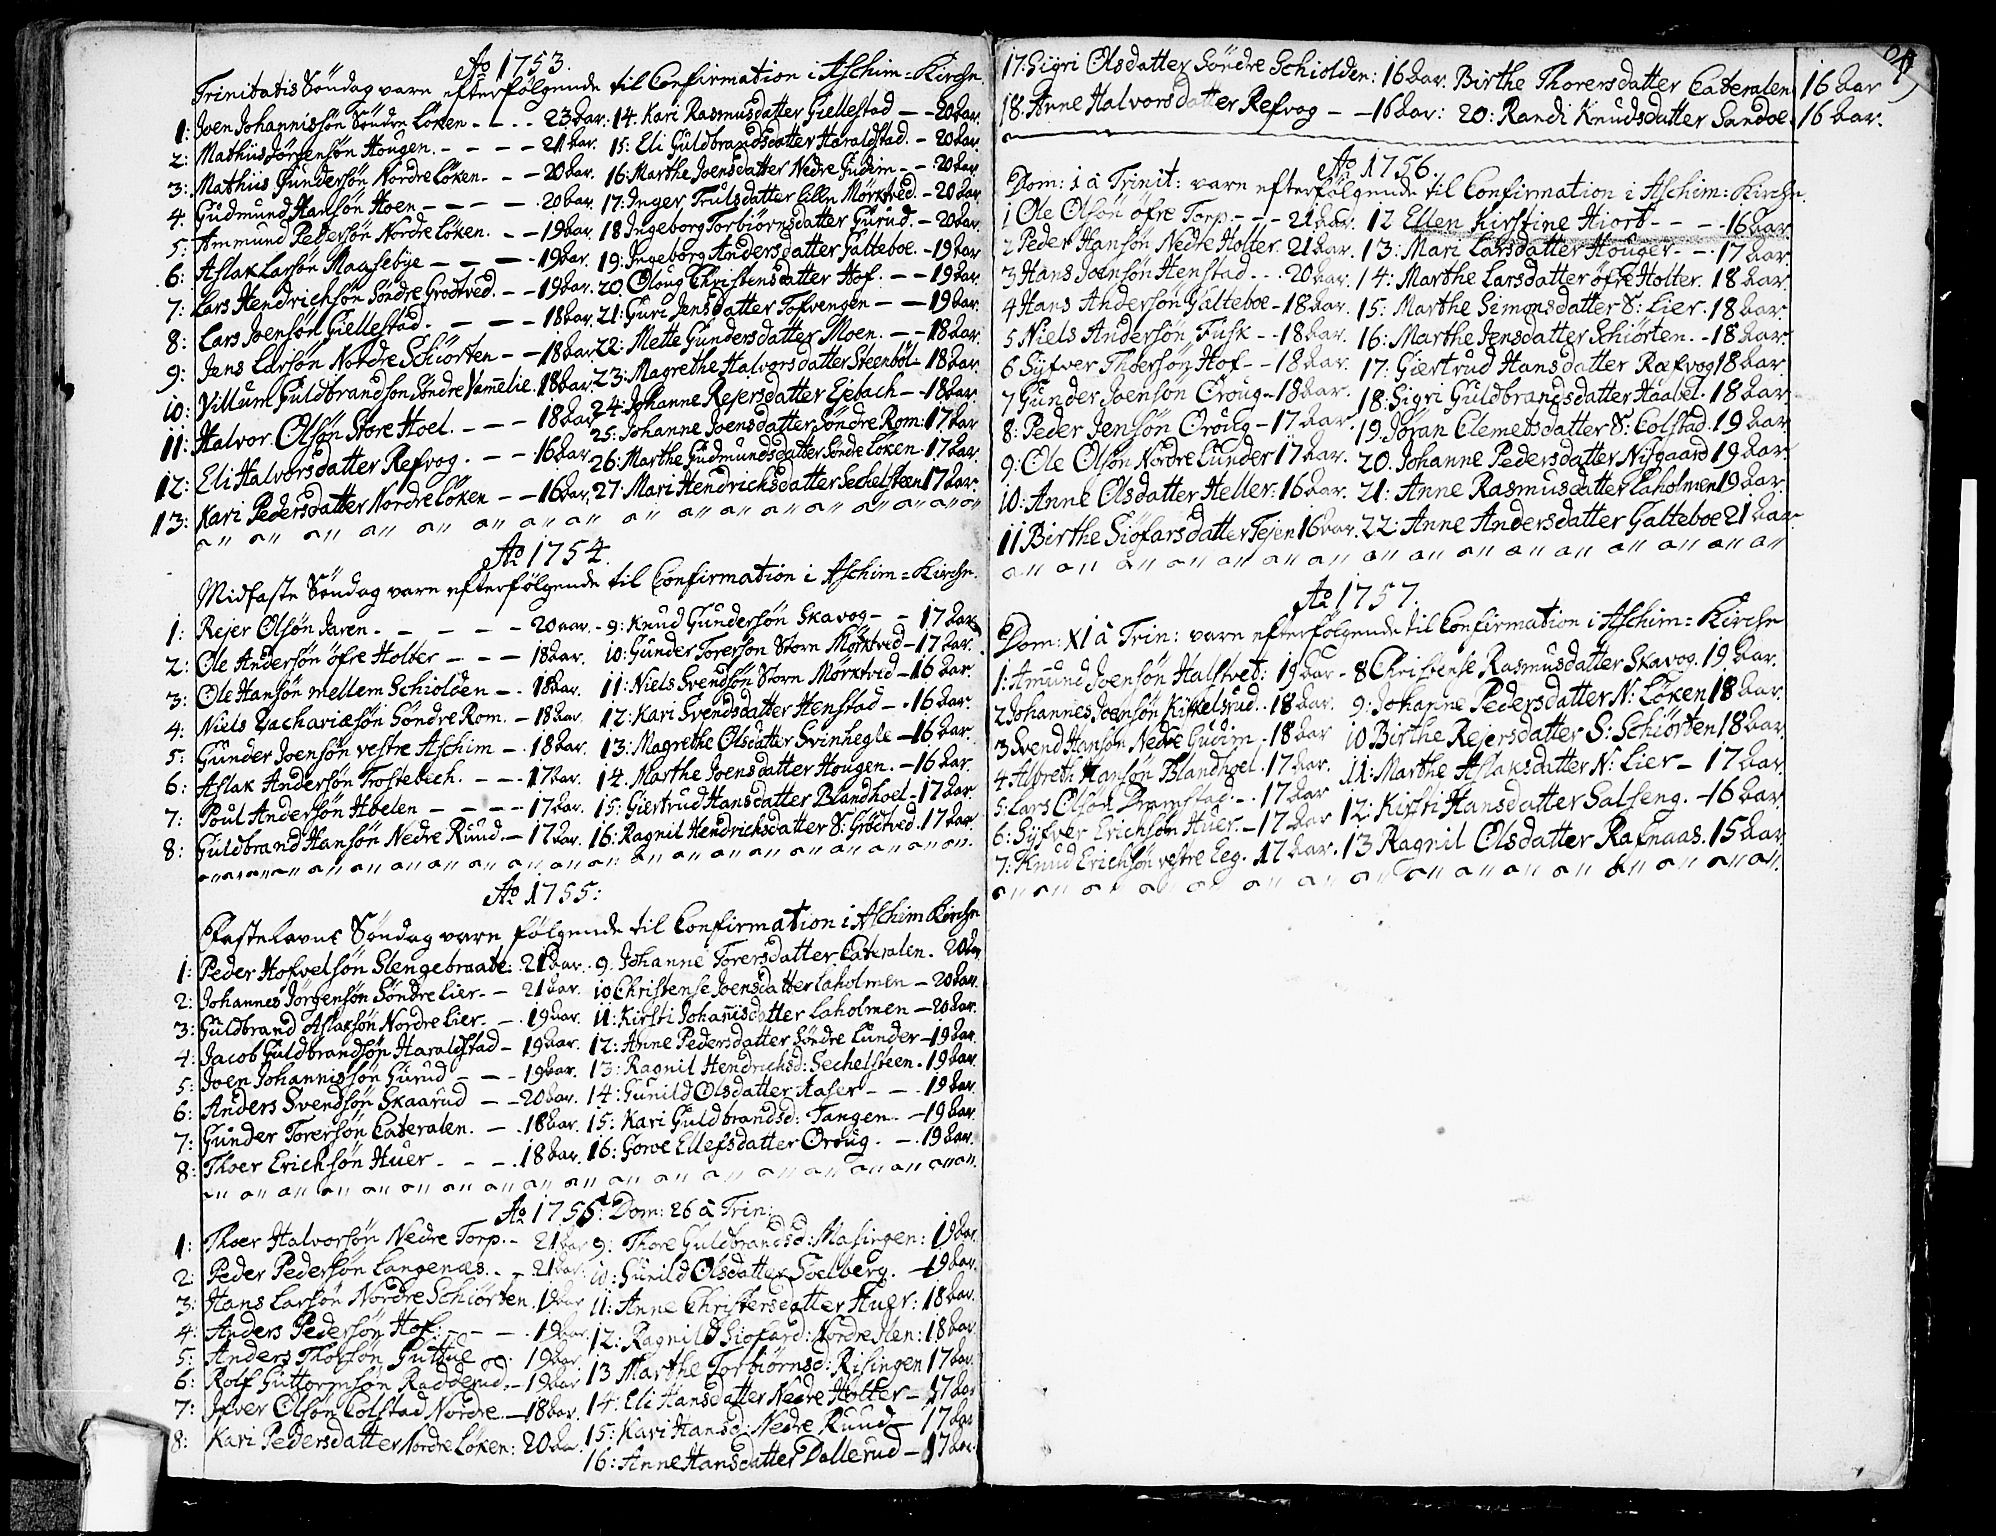 Ao 1753.
Trinitatis Søndag vare efterfølgende til Confirmation i Aschim=Kirche.
1: Joen Johannissøn Søndre Løken - - - 23 aar.
2: Mathiis Jørgensøn Hougen. - - - - 21 aar.
3: Mathiis Gundersøn Nordre Løken. - - 20 aar.
4: Gudmund Hansøn Hoen - - - - 20 aar.
5: Ammund Pedersøn Nordre Løken. - - 19 aar.
6: Aslak Larsøn Magsebye - - - - 19 aar.
7: Lars Hendrichsøn Søndre Grødtved. - - 19 aar.
8: Lars Joensøn Giellestad. - - - 18 aar.
9: Jens Larsøn Nordre Schiorten - - 18 aar
10: Villum Guldbrandsøn Søndre Vamelie. 18 aar
11: Halvor Olsøn Store Hoel. - - - 18 aar
12: Eli Halvorsdatter Refvog. - - - 16 aar.
13: Kari Pedersdatter Nordre Løken - - 16 aar.
14. Kari Rasmusdatter Giellestad - - 20 aar.
15: Eli Guldbrandsdatter Haraldstad. - 20 aar.
16: Marthe Joensdatter Nedre Gudim - - 20 aar.
17: Inger Trulsdatter Lille Mørktved. - 20 aar.
18 Ingeborg Torbiørnsdatter Gurud. - 20 aar.
19: Ingeborg Andersdatter Galteboe. - 19 aar.
20. Oloug Christensdatter Hof. - - - 19 aar.
21: Guri Jensdatter Tofvengen - - 19 aar.
22: Mette Gundersdatter Moen. - - 18 aar.
23: Magrethe Halvorsdatter Steenbøl - 18 aar.
24: Johanne Rejersdatter Ejebach - - 18 aar.
25: Johanne Joensdatter Søndre Rom: 17 aar
26: Marthe Gudmundsdatter Søndre Løken. 17 aar.
27: Mari Hendrichsdatter Sechelsteen 17 aar.
Ao 1754.
Midfaste Søndag vare efterfølgende til Confirmation i Aschim=Kirche.
1: Rejer Olsøn Jaren. - - - - - 20 aar.
2: Ole Andersøn øfre Holter - - - 18 aar.
3: Ole Hansøn mellem Schiolden - - 18 aar.
4: Niels Zachariæsøn Søndre Rom. - 18 aar.
5: Gunder Joensøn vestre Aschim - - 18 aar.
6: Aslak Andersøn Trostebech. - - - 17 aar.
7: Poul Andersøn Abelen - - - - 17 aar.
8: Guldbrand Hansøn Nedre Ruud. - 17 aar.
9: Knud Gundersøn Skavog - - 17 aar
10: Gunder Torersøn Store Mørktved - 17 aar.
11: Niels Svendsøn Store Mørktvid - 16 aar.
12: Kari Svendsdatter Henstad - - 16 aar.
13: Magrethe Olsdatter Svinhegle - 16 aar.
14. Marthe Joensdatter Hougen. - 16 aar.
15: Giertrud Hansdatter Blandhoel - 17 aar.
16: Ragnil Hendrichsdatter S: Grødtved. 17 aar.
Ao 1755:
Fastelavns Søndag vare følgende til Confirmation i Aschim Kirche
1: Peder Hofvelsøn Slengebraate. 21 aar.
2: Johannes Jørgensøn Søndre Lier. - 21 aar.
3: Guldbrand Aslaksøn Nordre Lier. - 19 aar.
4: Jacob Guldbrandsøn Haraldstad - 19 aar.
5: Joen Johannissøn Gurud - - - 19 aar.
6: Anders Svendsøn Skaarud - - 20 aar.
7: Gunder Torersøn Cateralen. - - 18 aar.
8: Thoer Erichsøn Huer - - - 18 aar.
9. Johanne Torersdatter Cateralen. 20 aar
10 Christense Joensdatter Laholmen - 20 aar.
11: Kirsti Johanisdatter Laholmen - 20 aar.
12: Anne Pedersdatter Søndre Lunder - 19 aar.
13: Ragnil Hendrichsd: Sechelsteen. 19 aar.
14: Gunild Olsdatter Aaser - - - 19 aar.
15: Kari Guldbrandsd: Tangen. - 19 aar.
16: Gorve Ellefsdatter Oroug. - - 19 aar.
Ao 1755: Dom: 26 à Trin:
1: Thoer Halvorsøn Nedre Torp. - 21 aar
2: Peder Pedersøn Langenæs. - - 21 aar.
3: Hans Larsøn Nordre Schiorten. 19 aar
4: Anders Pedersøn Hof: - - - 19 aar.
5: Anders Thorsøn Guttue - - 19 aar.
6: Rolf Guttormsøn Radderud. - 19 aar
7: Ifver Olsøn Colstad Nordre. - 18 aar.
8: Kari Pedersdatter Nordre Løken: 20 aar.
9: Thore Guldbrandsd: Masingen: 19 aar.
10: Gunild Olsdatter Soelberg. - 19 aar.
11: Anne Christersdatter Huer: 18 aar.
12: Ragnild Siofard: Nordre Hen: 18 aar
13 Marthe Torbiørnsd: Risingen 17 aar.
14: Eli Hansdatter Nedre Holter - 17 aar
15: Kari Hansd: Nedre Ruud - 17 aar
16: Anne Hansdatter Dallerud - 17 aar.
17: Sigri Olsdatter Søndre Schiolden: 16 aar. Birthe Thorersdatter Cateralen 16 aar
18: Anne Halvorsdatter Refvog - - 16 aar: 20: Randi Knudsdatter Sandoe. 16 aar.
Ao 1756.
Dom: 1 à Trinit: vare efterfølgende til Confirmation i Aschim: Kirche.
1 Ole Olsøn øfre Torp - - - 21 aar.
2 Peder Hansøn Nedre Holter. 21 aar.
3 Hans Joensøn Henstad. - - 20 aar.
4 Hans Andersøn Galteboe - 18 aar.
5 Niels Andersøn Fusk - - 18 aar.
6 Syfver Thoersøn Hof - - 18 aar.
7 Gunder Joensøn Oroug - 18 aar.
8: Peder Jensøn Oroug - 17 aar.
9: Ole Olsøn Nordre Lunder 17 aar.
10: Anne Olsdatter Heller: 16 aar.
11 Birthe Siøfarsdatter Tejen 16 aar.
12 Ellen Kirstine Hiort - - - 16 aar
13: Mari Larsdatter Houger - - 17 aar
14: Marthe Larsdatter øfre Holter. 18 aar.
15: Marthe Simonsdatter S: Lier. 18 aar.
16: Marthe Jensdatter Schiorten. - 18 aar.
17: Giertrud Hansdatter Ræfvog 18 aar.
18: Sigri Guldbrandsdatter Haabel. 18 aar.
19: Joran Clemetsdatter S: Colstad. 19 aar.
20. Johanne Pedersdatter Nisgaard 19 aar.
21: Anne Rasmusdatter Laholmen 19 aar.
22: Anne Andersdatter Galteboe 21 aar.
Ao 1757.
Dom: XI à Trin: vare efterfølgende til Confirmation i Aschim=Kirche
1: Amund Joensøn Halstved: 19 aar
2 Johannes Joensøn Kykkelsrud. 18 aar.
3 Svend Hansøn Nedre Gudim. - 18 aar
4 Albret Hansøn Blandhoel. 17 aar.
5: Lars Olsøn Dramstad - . 17 aar
6: Syfver Erichsøn Huer. - 17 aar
7: Knud Erichsøn vestre Eeg. 17 aar.
8 Christense Rasmusdatter Skavog. 19 aar.
9: Johanne Pedersdatter N: Løken 18 aar.
10 Birthe Rejersdatter S: Schiorten 18 aar.
11: Marthe Aslaksdatter N: Lier - 17 aar.
12: Kirsti Hansdatter Salseng. - 16 aar.
13 Ragnil Olsdatter Rafnaas. 15 aar.